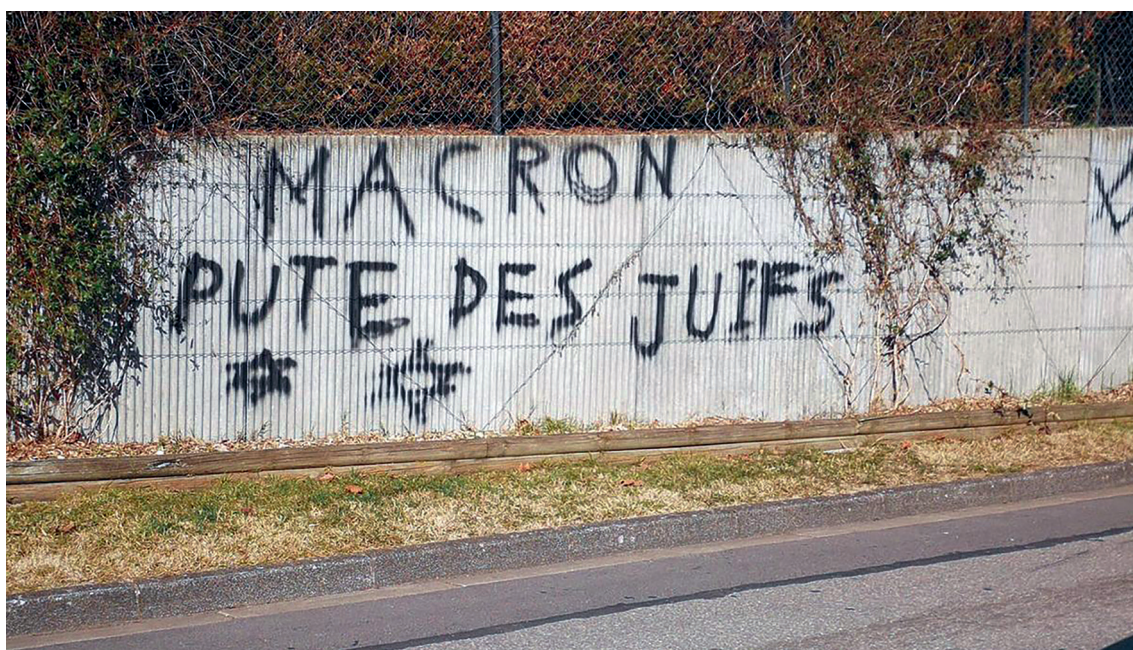 MACRON
PUTE DES JUIFS